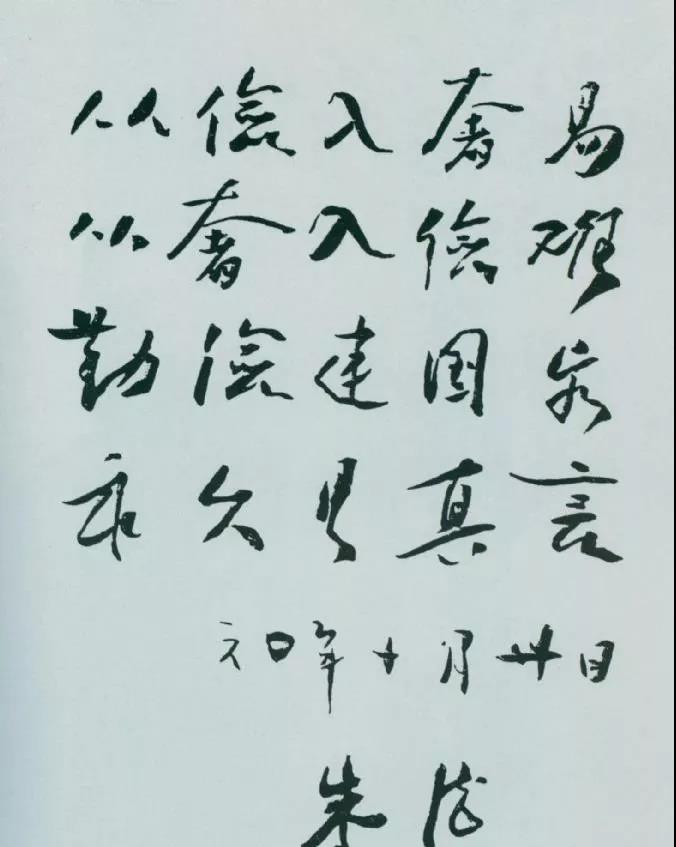 从儉入奢易
从奢入儉难
勤儉建国家
永久是真言
六〇年十月廿日
朱德